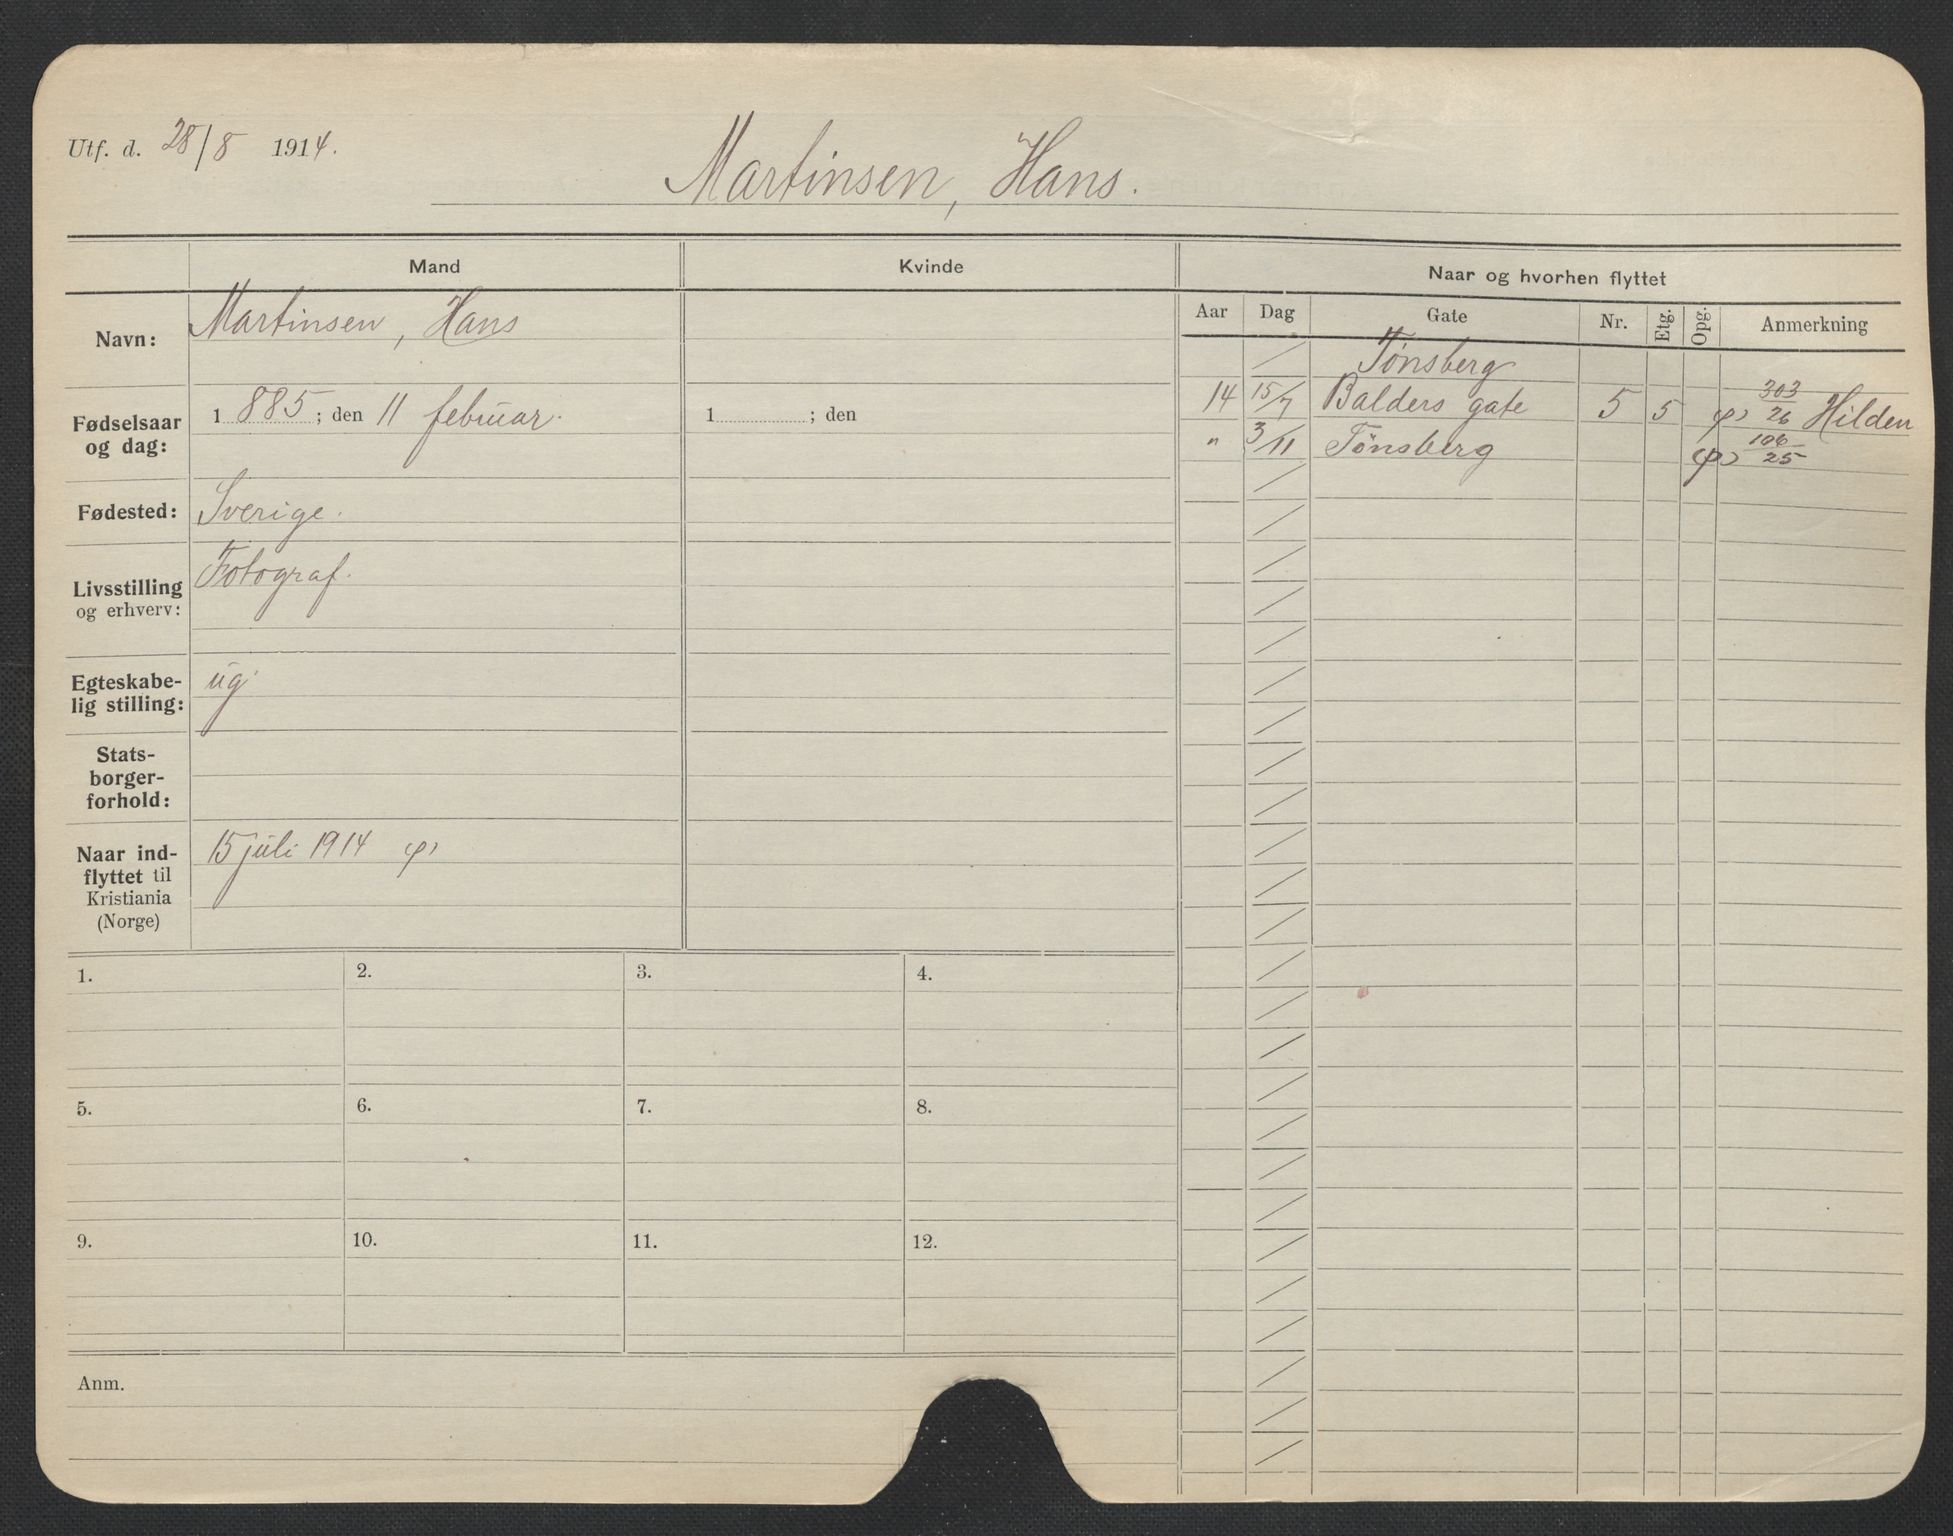 Utf. d. 28/8 1914.
Martinsen, Hans.
Mand
Kvinde
Naar og hvorhen flyttet
Aar Dag Gate Nr. Etg. Opg. Anmerkning
Navn: Martinsen, Hans
Fødselsaar
og dag:
1 885 ; den 11 februar.
1 ; den
Fødested: Sverige.
Livsstilling
og erhverv:
Fotograf.
Egteskabe-
lig stilling:
ug.
Stats-
borger-
forhold:
Naar ind-
flyttet til
Kristiania
(Norge)
15 juli 1914
Tønsberg
14 15/7 Balders gate 5 5 303/26 Hilden
" 3/11 Tønsberg 106/25
1. 2. 3. 4.
5. 6. 7. 8.
9. 10. 11. 12.
Anm.